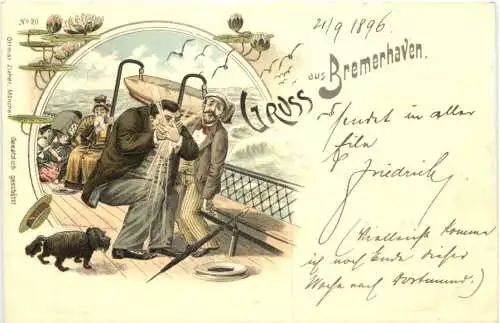 No 20.
21/9 1896.
Gruss
aus Bremerhaven.
Ottmar Zieher, München
Gesetzlich geschützt
Sendet in aller
Eile
Friedrich
(Vielleicht komme
ich noch Ende dieser
Woche nach Dortmund.)